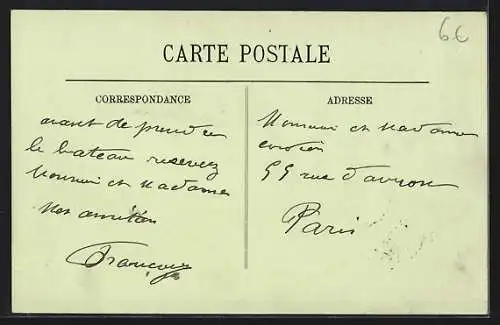 6€
CARTE POSTALE
CORRESPONDANCE
avant de prendre
le bateau recevez
Monsieur et Madame
Mes amitiés
François
ADRESSE
Monsieur et Madame
rue d'avron
Paris